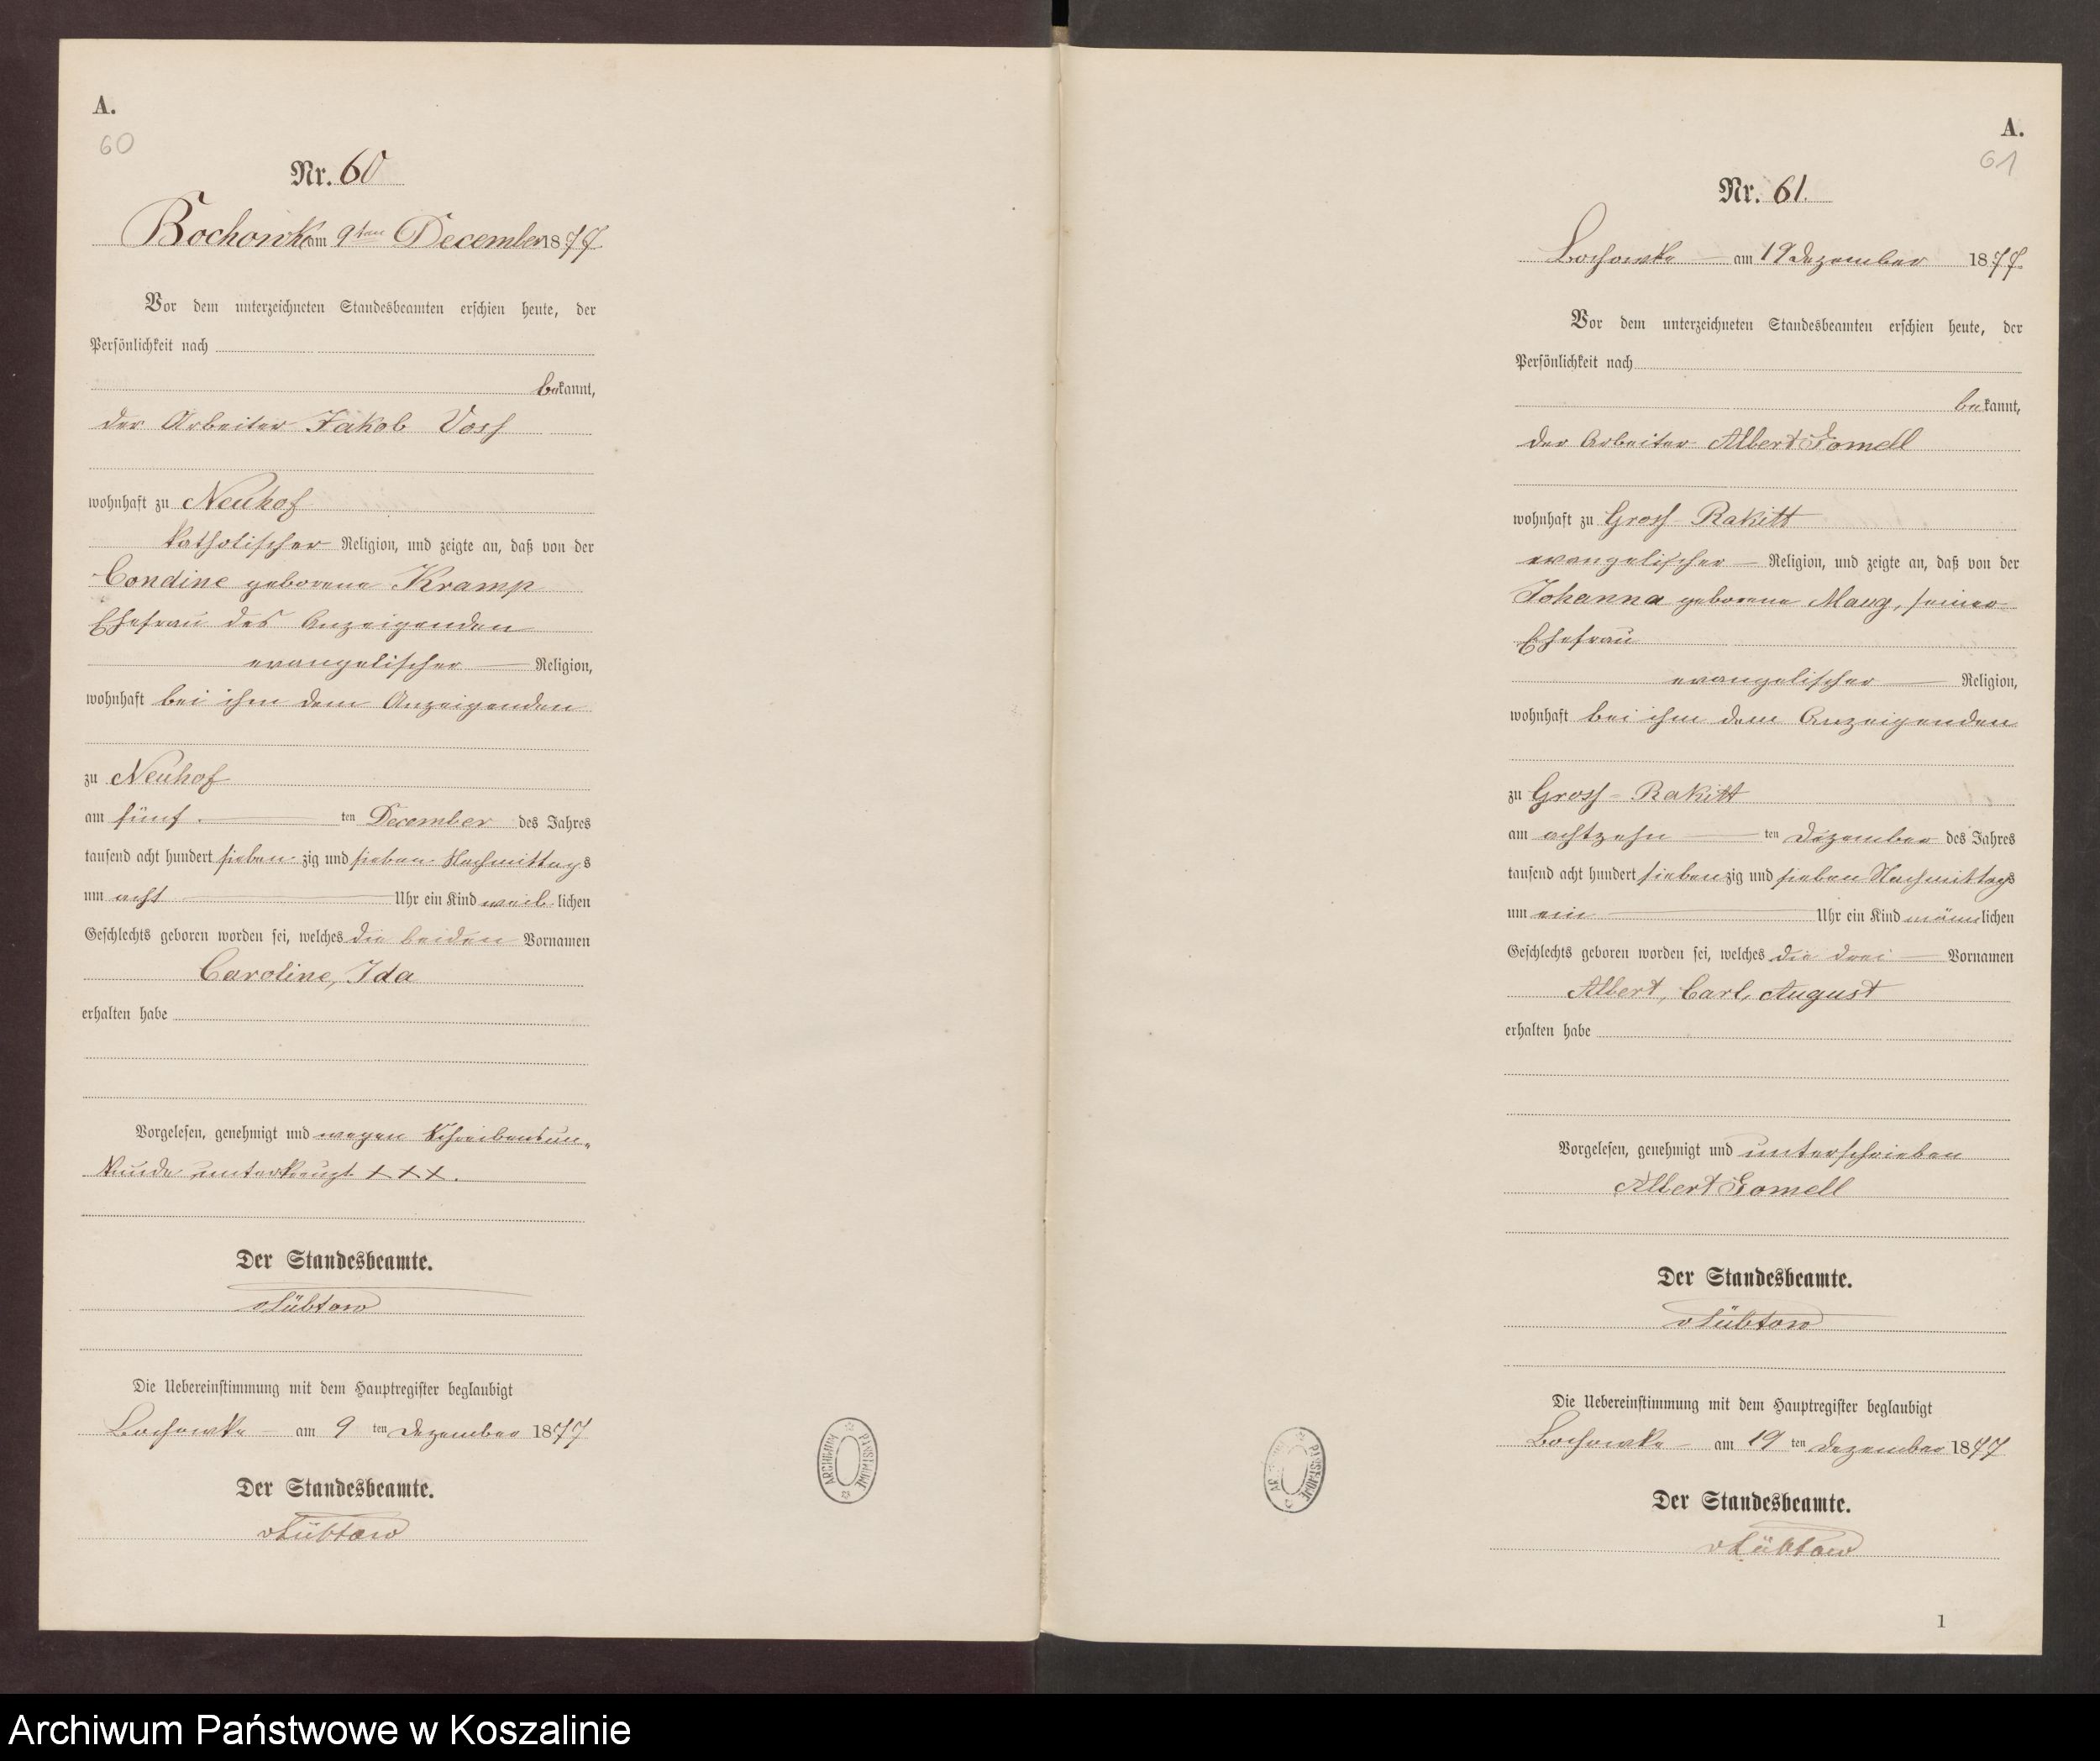 A.
60
Nr. 60
Bochowke am 9ten December 1877
Vor dem unterzeichneten Standesbeamten erschien heute, der
Persönlichkeit nach
bekannt,
der Arbeiter Jakob Voss
wohnhaft zu Neuhof
katholischer Religion, und zeigte an, daß von der
geborene Kramp
Ehefrau des Anzeigenden
evangelischer Religion,
wohnhaft bei ihm dem Anzeigenden
zu Neuhof
am fünf ten December des Jahres
tausend acht hundert sieben zig und sieben Nachmittags
um acht Uhr ein Kind weib lichen
Geschlechts geboren worden sei, welches die beiden Vornamen
Caroline, Ida
erhalten habe
Vorgelesen, genehmigt und wegen Schreibensun-
kunde unterkreuzt + + +.
Der Standesbeamte.
vLübtow
Die Uebereinstimmung mit dem Hauptregister beglaubigt
Bochowke am 9 ten Dezember 1877
Der Standesbeamte.
vLübtow
ARCHIWUM PAŃSTWOWE
A.
61
Nr. 61.
Bochowke am 19 Dezember 1877.
Vor dem unterzeichneten Standesbeamten erschien heute, der
Persönlichkeit nach
bekannt,
der Arbeiter Albert Gomell
wohnhaft zu Gross Rakitt
evangelischer Religion, und zeigte an, daß von der
Johanna geborene seiner
Ehefrau
evangelischer Religion,
wohnhaft bei ihm dem Anzeigenden
zu Gross-Rakitt
am achtzehn ten Dezember des Jahres
tausend acht hundert sieben zig und sieben Nachmittags
um ein Uhr ein Kind männ lichen
Geschlechts geboren worden sei, welches die drei Vornamen
Albert, Carl, August
erhalten habe
Vorgelesen, genehmigt und unterschrieben
Albert Gomell
Der Standesbeamte.
vLübtow
Die Uebereinstimmung mit dem Hauptregister beglaubigt
Bochowke am 19 ten Dezember 1877
Der Standesbeamte.
vLübtow
1
Archiwum Państwowe w Koszalinie